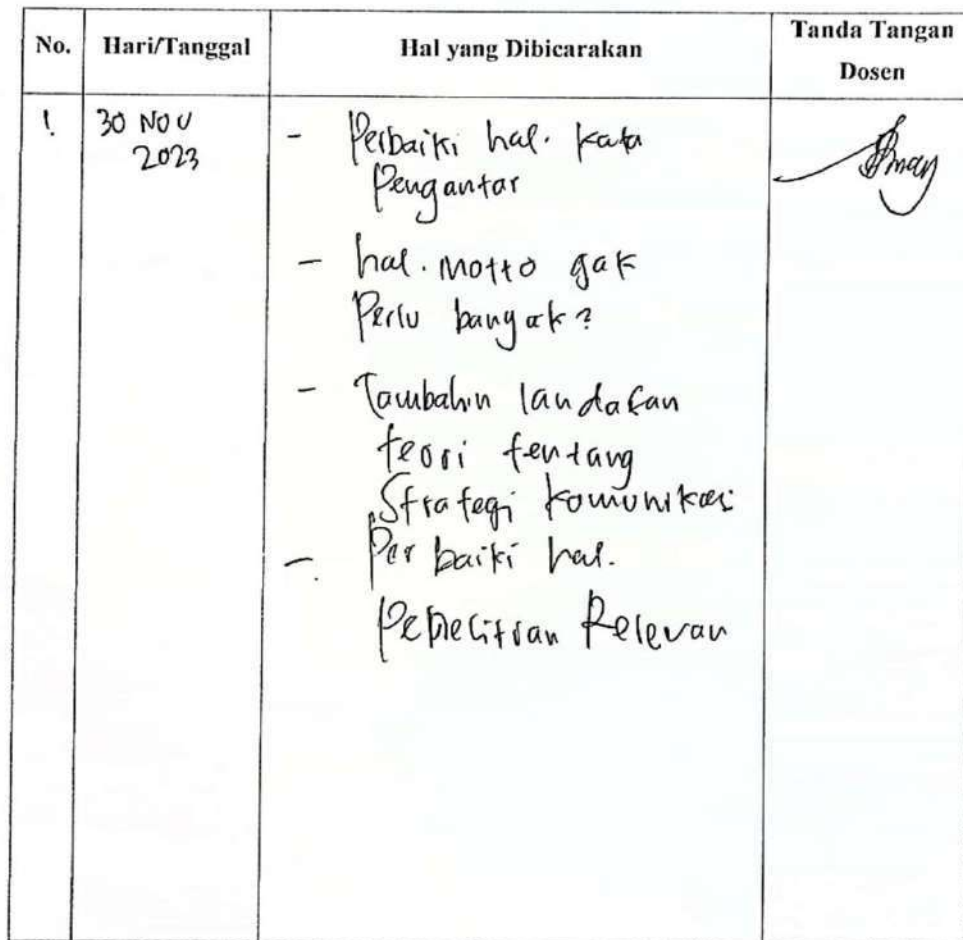 No. Hari/Tanggal Hal yang Dibicarakan Tanda Tangan Dosen
1. 30 Nov 2023
- Perbaiki hal. kata
Pengantar
- hal. motto gak
Perlu banyak?
- Tambahin landasan
teori tentang
Strategi komunikasi
- Perbaiki hal.
Penelitian Relevan